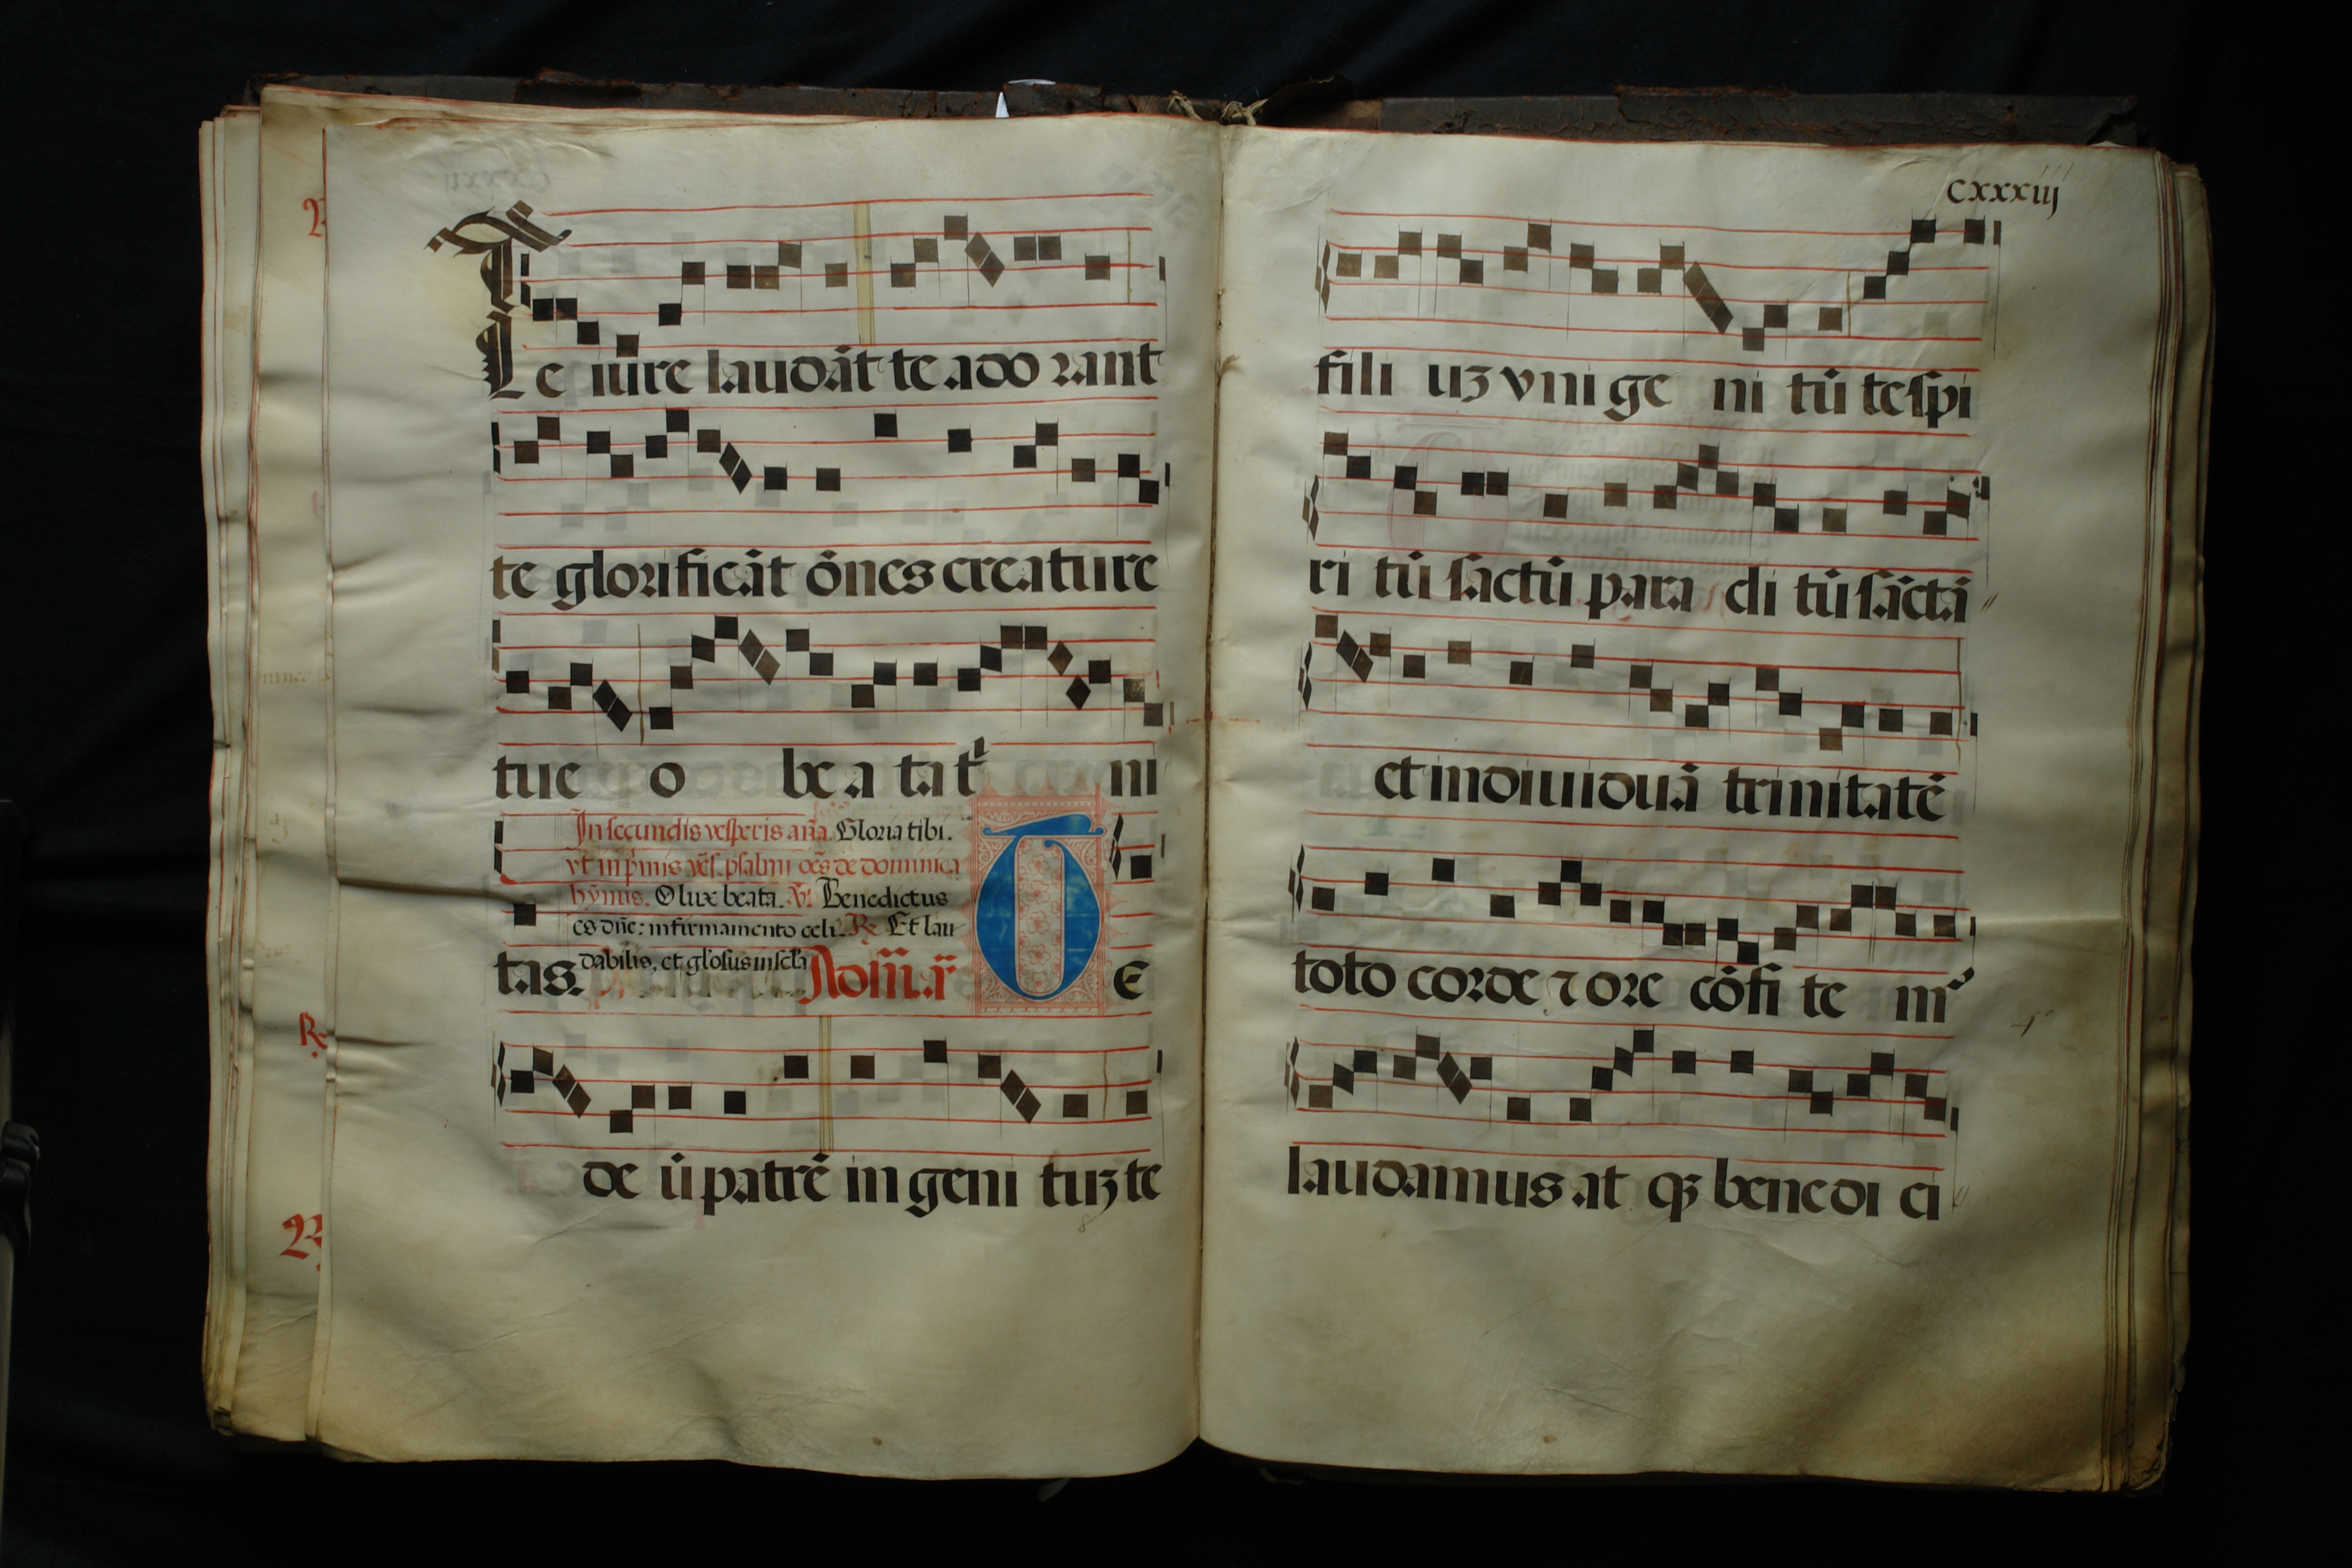 Te iure laudāt te ado rant
te glorificāt ōnes creature
tue o be a ta tr̄i ni
In secundis vesperis añā. Gloria tibi.
vt in p̄mis ves̄. psalmi oēs de dominica
hȳmnis. O lux beata. ℣. Benedictus
es dñe: in firmamento celi. ℟. Et lau
tas. dabilis, et gl̄osus in sc̄la T E
de ū patrē in geni tuꝫ te
cxxxiij
fili uꝫ vni ge ni tū te spi
ri tū sāctū para cli tū sāctā
et indiuiduā trinitatē
toto corde ⁊ ore cōfi te mᷣ
laudamus at qꝫ bene di ci